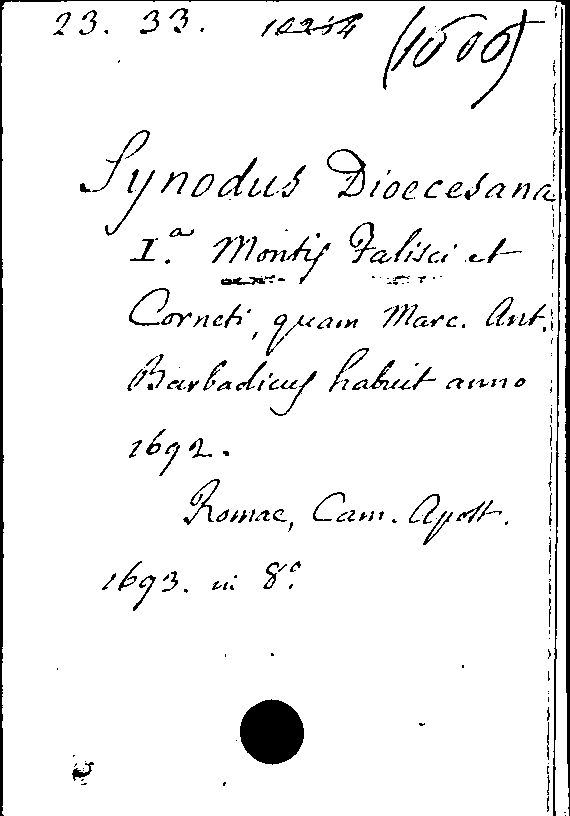 23. 33. 10254 (1600)
Synodus Dioecesana
I.a Montis Falisci et
Corneti, quam Marc. Ant.
Barbadicus habuit anno
1692.
Romae, Cam. Apost.
1693. in 8.o